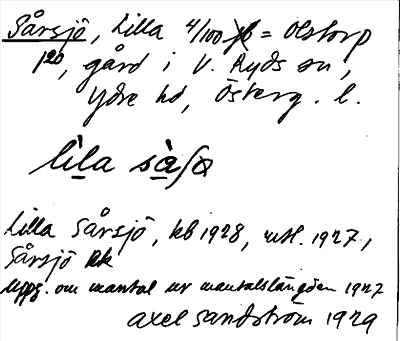 Sårsjö, Lilla 4/100 = Olstorp
1²⁰, gård i V. Ryds sn,
Ydre hd, Österg. l.
lìla sàʃɷ
Lilla Sårsjö, kb 1928, utt. 1927,
Sårsjö kk
uppg. om mantal ur mantalslängden 1927
Axel Sandström 1929